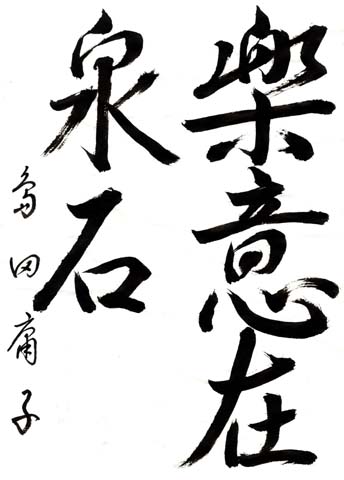 樂意在
泉石
島田庸子